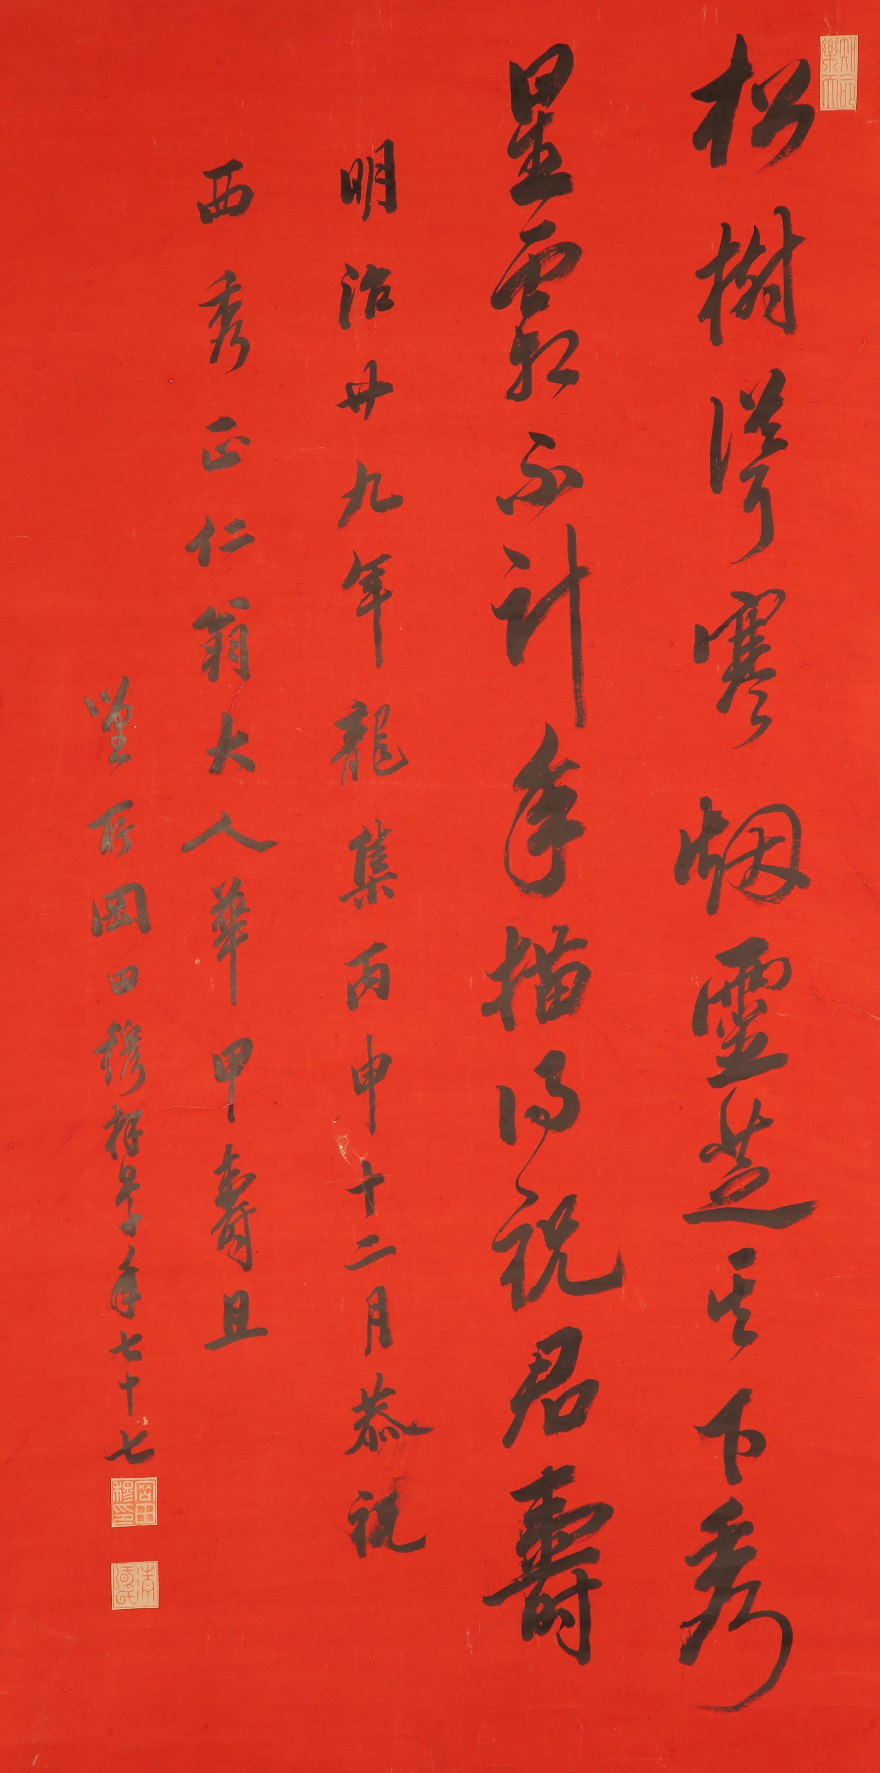 松樹凝寒烟靈芝其下秀
星霜不計年描得祝君壽
明治廿九年龍集丙申十二月恭祝
西秀正仁翁大人華甲壽且
岡田穆拜草年七十七